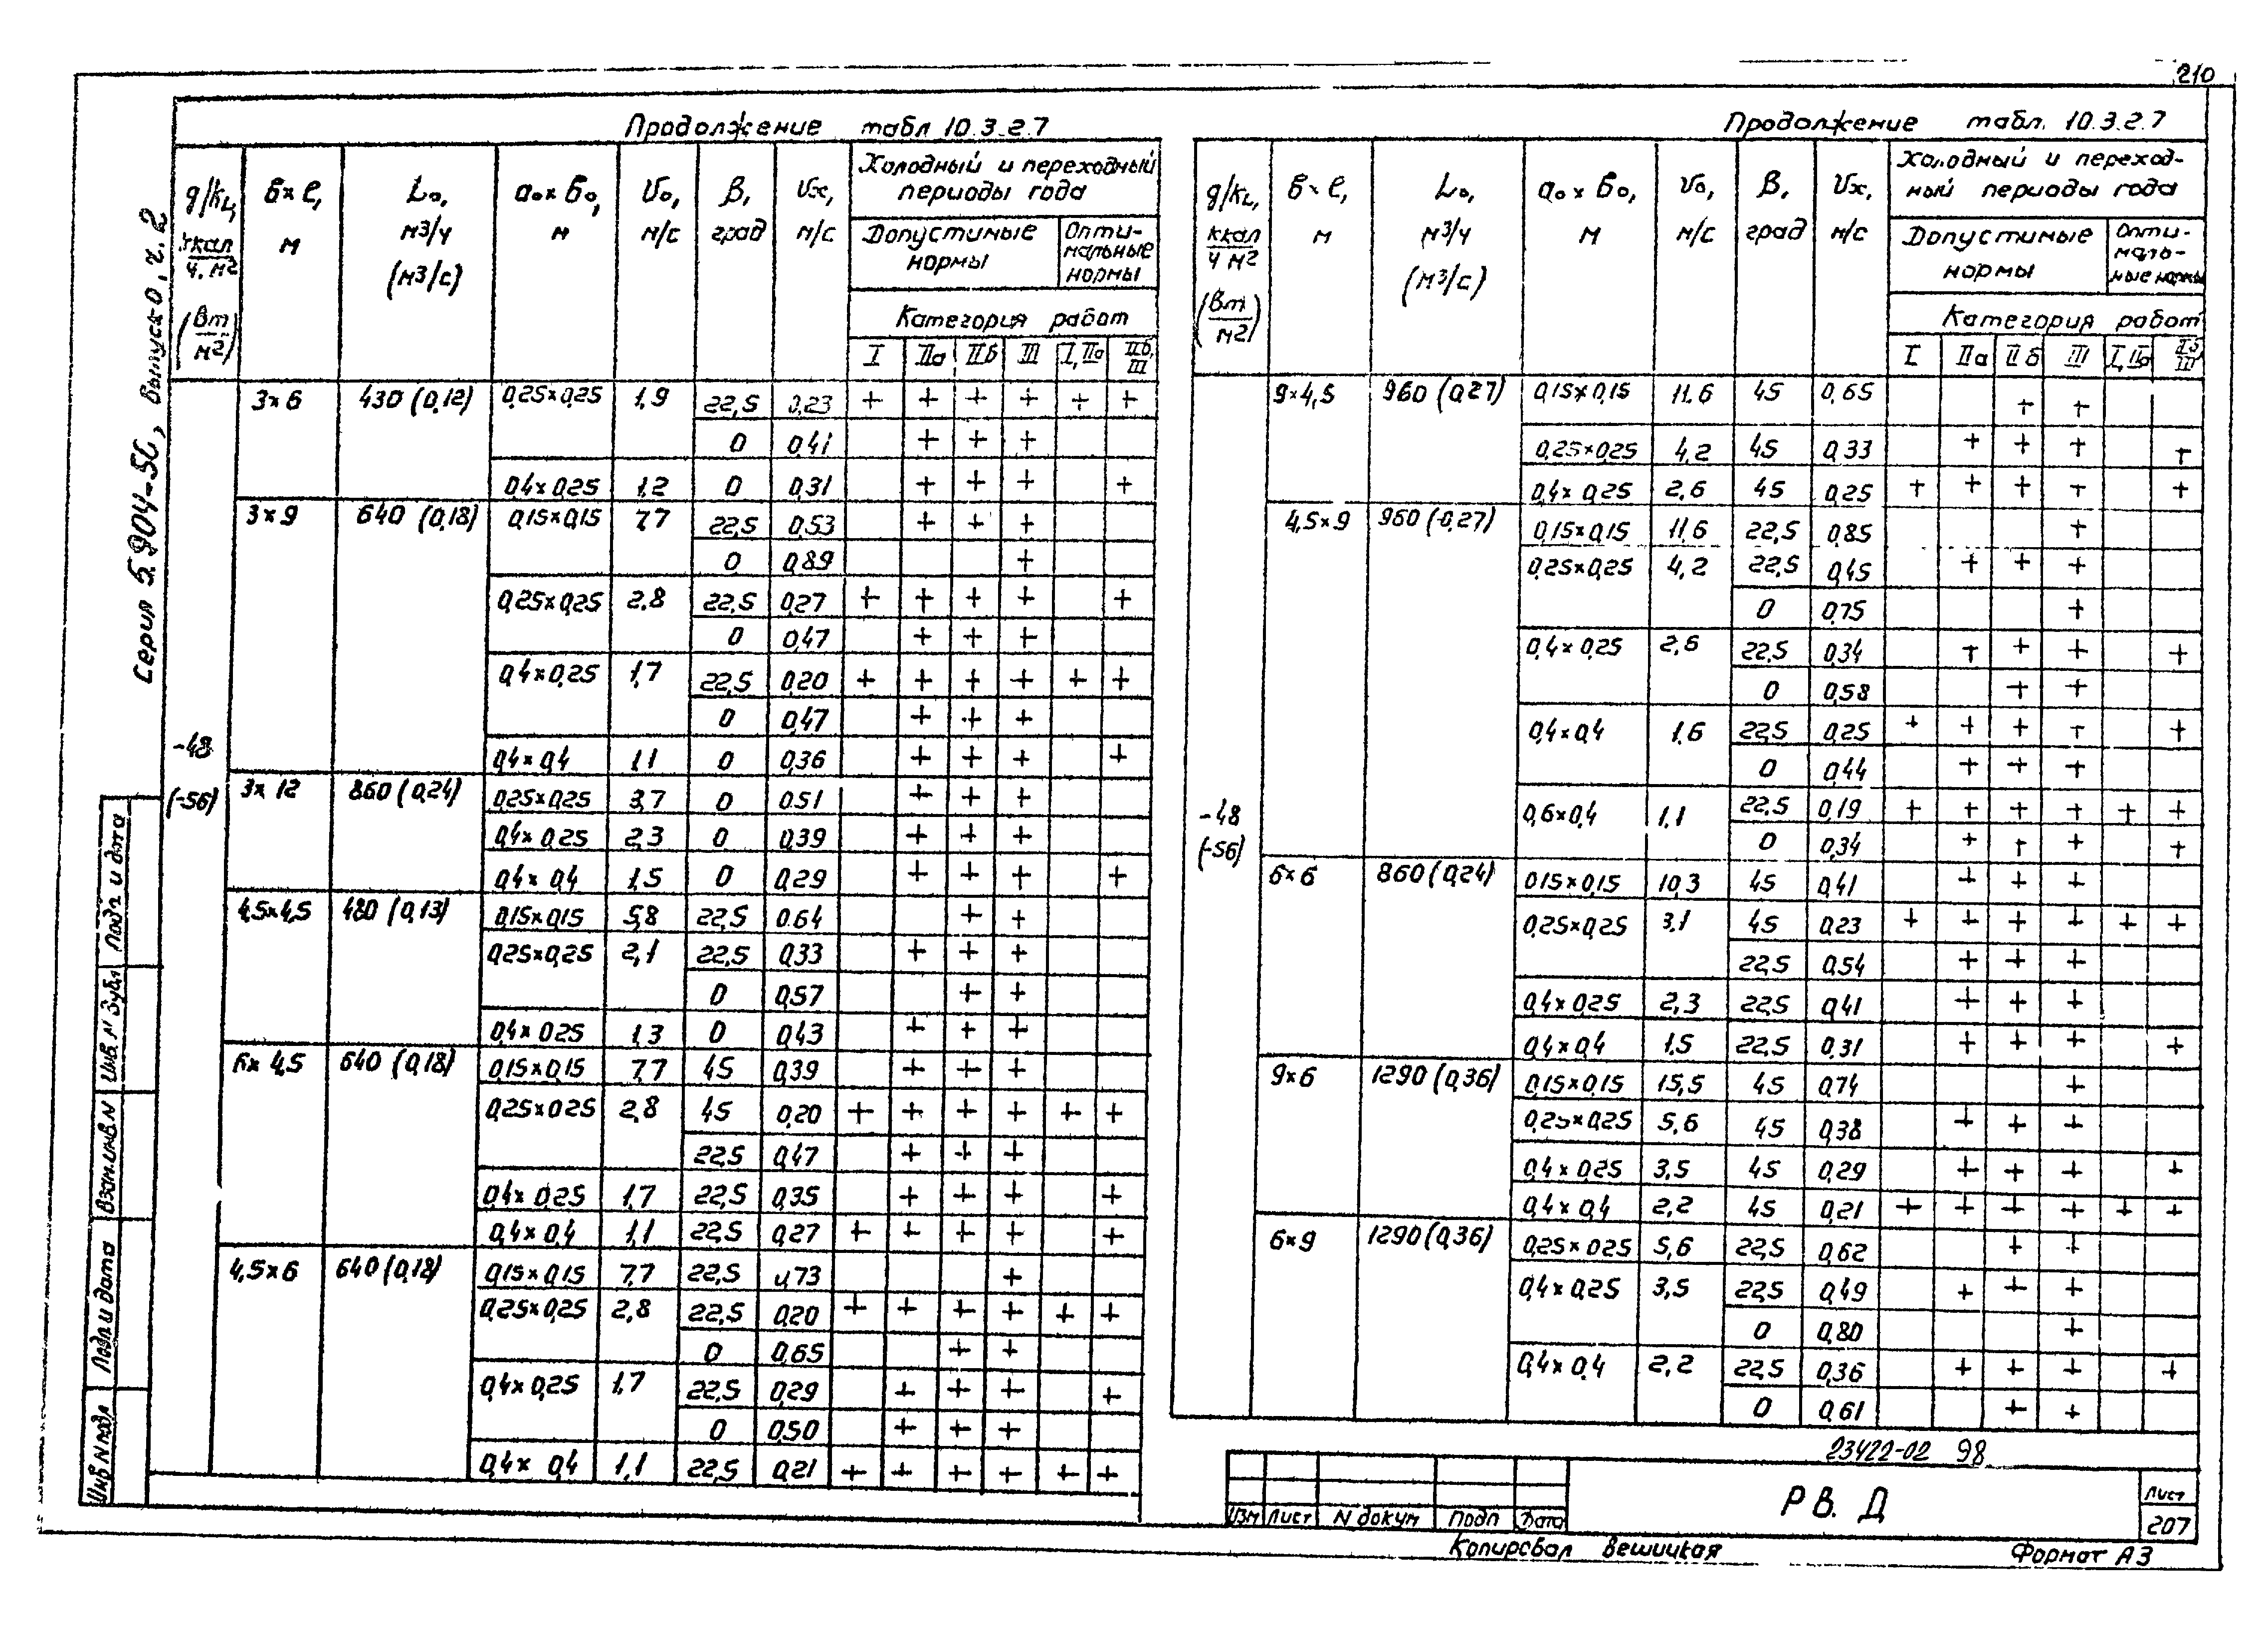 210
Серия 5.904-50, выпуск 0, ч. 2
Продолжение табл 10.3.2.7
g/kц, ккал/ч.м² (Вт/м²) | б×ℓ, м | L₀, м³/ч (м³/с) | a₀×б₀, м | V₀, м/с | β, град | Vx, м/с | Холодный и переходный периоды года
Допустимые нормы | Оптимальные нормы
Категория работ
I | IIа | IIб | III | I, IIа | IIб, III
-48 (-56)
3×6 | 430 (0,12) | 0,25×0,25 | 1,9 | 22,5 | 0,23 | + | + | + | + | + | +
0 | 0,41 | | + | + | + | |
0,4×0,25 | 1,2 | 0 | 0,31 | | + | + | + | | +
3×9 | 640 (0,18) | 0,15×0,15 | 7,7 | 22,5 | 0,53 | | + | + | + | |
0 | 0,89 | | | | + | |
0,25×0,25 | 2,8 | 22,5 | 0,27 | + | + | + | + | | +
0 | 0,47 | | + | + | + | |
0,4×0,25 | 1,7 | 22,5 | 0,20 | + | + | + | + | + | +
0 | 0,47 | | + | + | + | |
0,4×0,4 | 1,1 | 0 | 0,36 | | + | + | + | | +
3×12 | 860 (0,24) | 0,25×0,25 | 3,7 | 0 | 0,51 | | + | + | + | |
0,4×0,25 | 2,3 | 0 | 0,39 | | + | + | + | |
0,4×0,4 | 1,5 | 0 | 0,29 | | + | + | + | | +
4,5×4,5 | 480 (0,13) | 0,15×0,15 | 5,8 | 22,5 | 0.64 | | | + | + | |
0,25×0,25 | 2,1 | 22,5 | 0,33 | | + | + | + | |
0 | 0,57 | | | + | + | |
0,4×0,25 | 1,3 | 0 | 0,43 | | + | + | + | |
6×4,5 | 640 (0,18) | 0,15×0,15 | 7,7 | 45 | 0,39 | | + | + | + | |
0,25×0,25 | 2,8 | 45 | 0,20 | + | + | + | + | + | +
22,5 | 0,47 | | + | + | + | |
0,4×0,25 | 1,7 | 22,5 | 0,35 | | + | + | + | | +
0,4×0,4 | 1,1 | 22,5 | 0,27 | + | + | + | + | | +
4,5×6 | 640 (0,18) | 0,15×0,15 | 7,7 | 22,5 | 0,73 | | | | + | |
0,25×0,25 | 2,8 | 22,5 | 0,20 | + | + | + | + | + | +
0 | 0,65 | | | + | + | |
0,4×0,25 | 1,7 | 22,5 | 0,29 | | + | + | + | | +
0 | 0,50 | | + | + | + | |
0,4×0,4 | 1,1 | 22,5 | 0,21 | + | + | + | + | + | +
Продолжение табл. 10.3.2.7
g/kц, ккал/ч м² (Вт/м²) | б×ℓ, м | L₀, м³/ч (м³/с) | a₀×б₀, м | V₀, м/с | β, град | Vx, м/с | Холодный и переходный периоды года
Допустимые нормы | Оптимальные нормы
Категория работ
I | IIа | IIб | III | I, IIа | IIб, III
-48 (-56)
9×4,5 | 960 (0,27) | 0,15×0,15 | 11.6 | 45 | 0,65 | | | + | + | |
0,25×0,25 | 4,2 | 45 | 0,33 | | + | + | + | | +
0,4×0,25 | 2,6 | 45 | 0,25 | + | + | + | + | | +
4,5×9 | 960 (0,27) | 0,15×0,15 | 11,6 | 22,5 | 0,85 | | | | + | |
0,25×0,25 | 4,2 | 22,5 | 0,45 | | + | + | + | |
0 | 0,75 | | | | + | |
0,4×0,25 | 2,6 | 22,5 | 0,34 | | + | + | + | | +
0 | 0,58 | | | + | + | |
0,4×0,4 | 1,6 | 22,5 | 0,25 | + | + | + | + | | +
0 | 0,44 | | + | + | + | |
0,6×0,4 | 1,1 | 22,5 | 0,19 | + | + | + | + | + | +
0 | 0,34 | | + | + | + | | +
6×6 | 860 (0,24) | 0,15×0,15 | 10,3 | 45 | 0,41 | | + | + | + | |
0,25×0,25 | 3,1 | 45 | 0,23 | + | + | + | + | + | +
22,5 | 0,54 | | + | + | + | |
0,4×0,25 | 2,3 | 22,5 | 0,41 | | + | + | + | |
0,4×0,4 | 1,5 | 22,5 | 0,31 | | + | + | + | | +
9×6 | 1290 (0,36) | 0,15×0,15 | 15,5 | 45 | 0,74 | | | | + | |
0,25×0,25 | 5,6 | 45 | 0,38 | | + | + | + | |
0,4×0,25 | 3,5 | 45 | 0,29 | | + | + | + | | +
0,4×0,4 | 2,2 | 45 | 0,21 | + | + | + | + | + | +
6×9 | 1290 (0,36) | 0,25×0,25 | 5,6 | 22,5 | 0,62 | | | + | + | |
0,4×0,25 | 3,5 | 22,5 | 0,49 | | + | + | + | |
0 | 0,80 | | | | + | |
0,4×0,4 | 2,2 | 22,5 | 0,36 | | + | + | + | | +
0 | 0,61 | | | + | + | |
23422-02 98
Изм Лист N докум Подп Дата
РВ. Д
Лист
207
Копировал Вешицкая Формат А3
Инв N подл Подп и дата Взам.инв.N Инв. N дубл Подп и дата